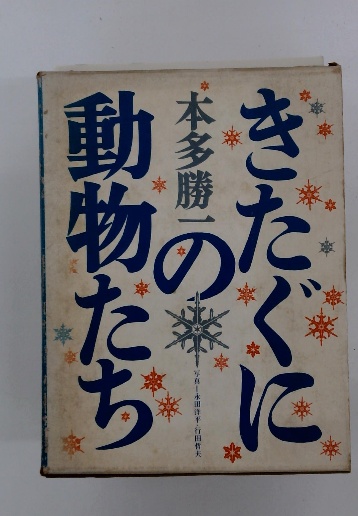 きたぐに
の
動物たち
本多勝一
写真＝永田洋平・行田哲夫